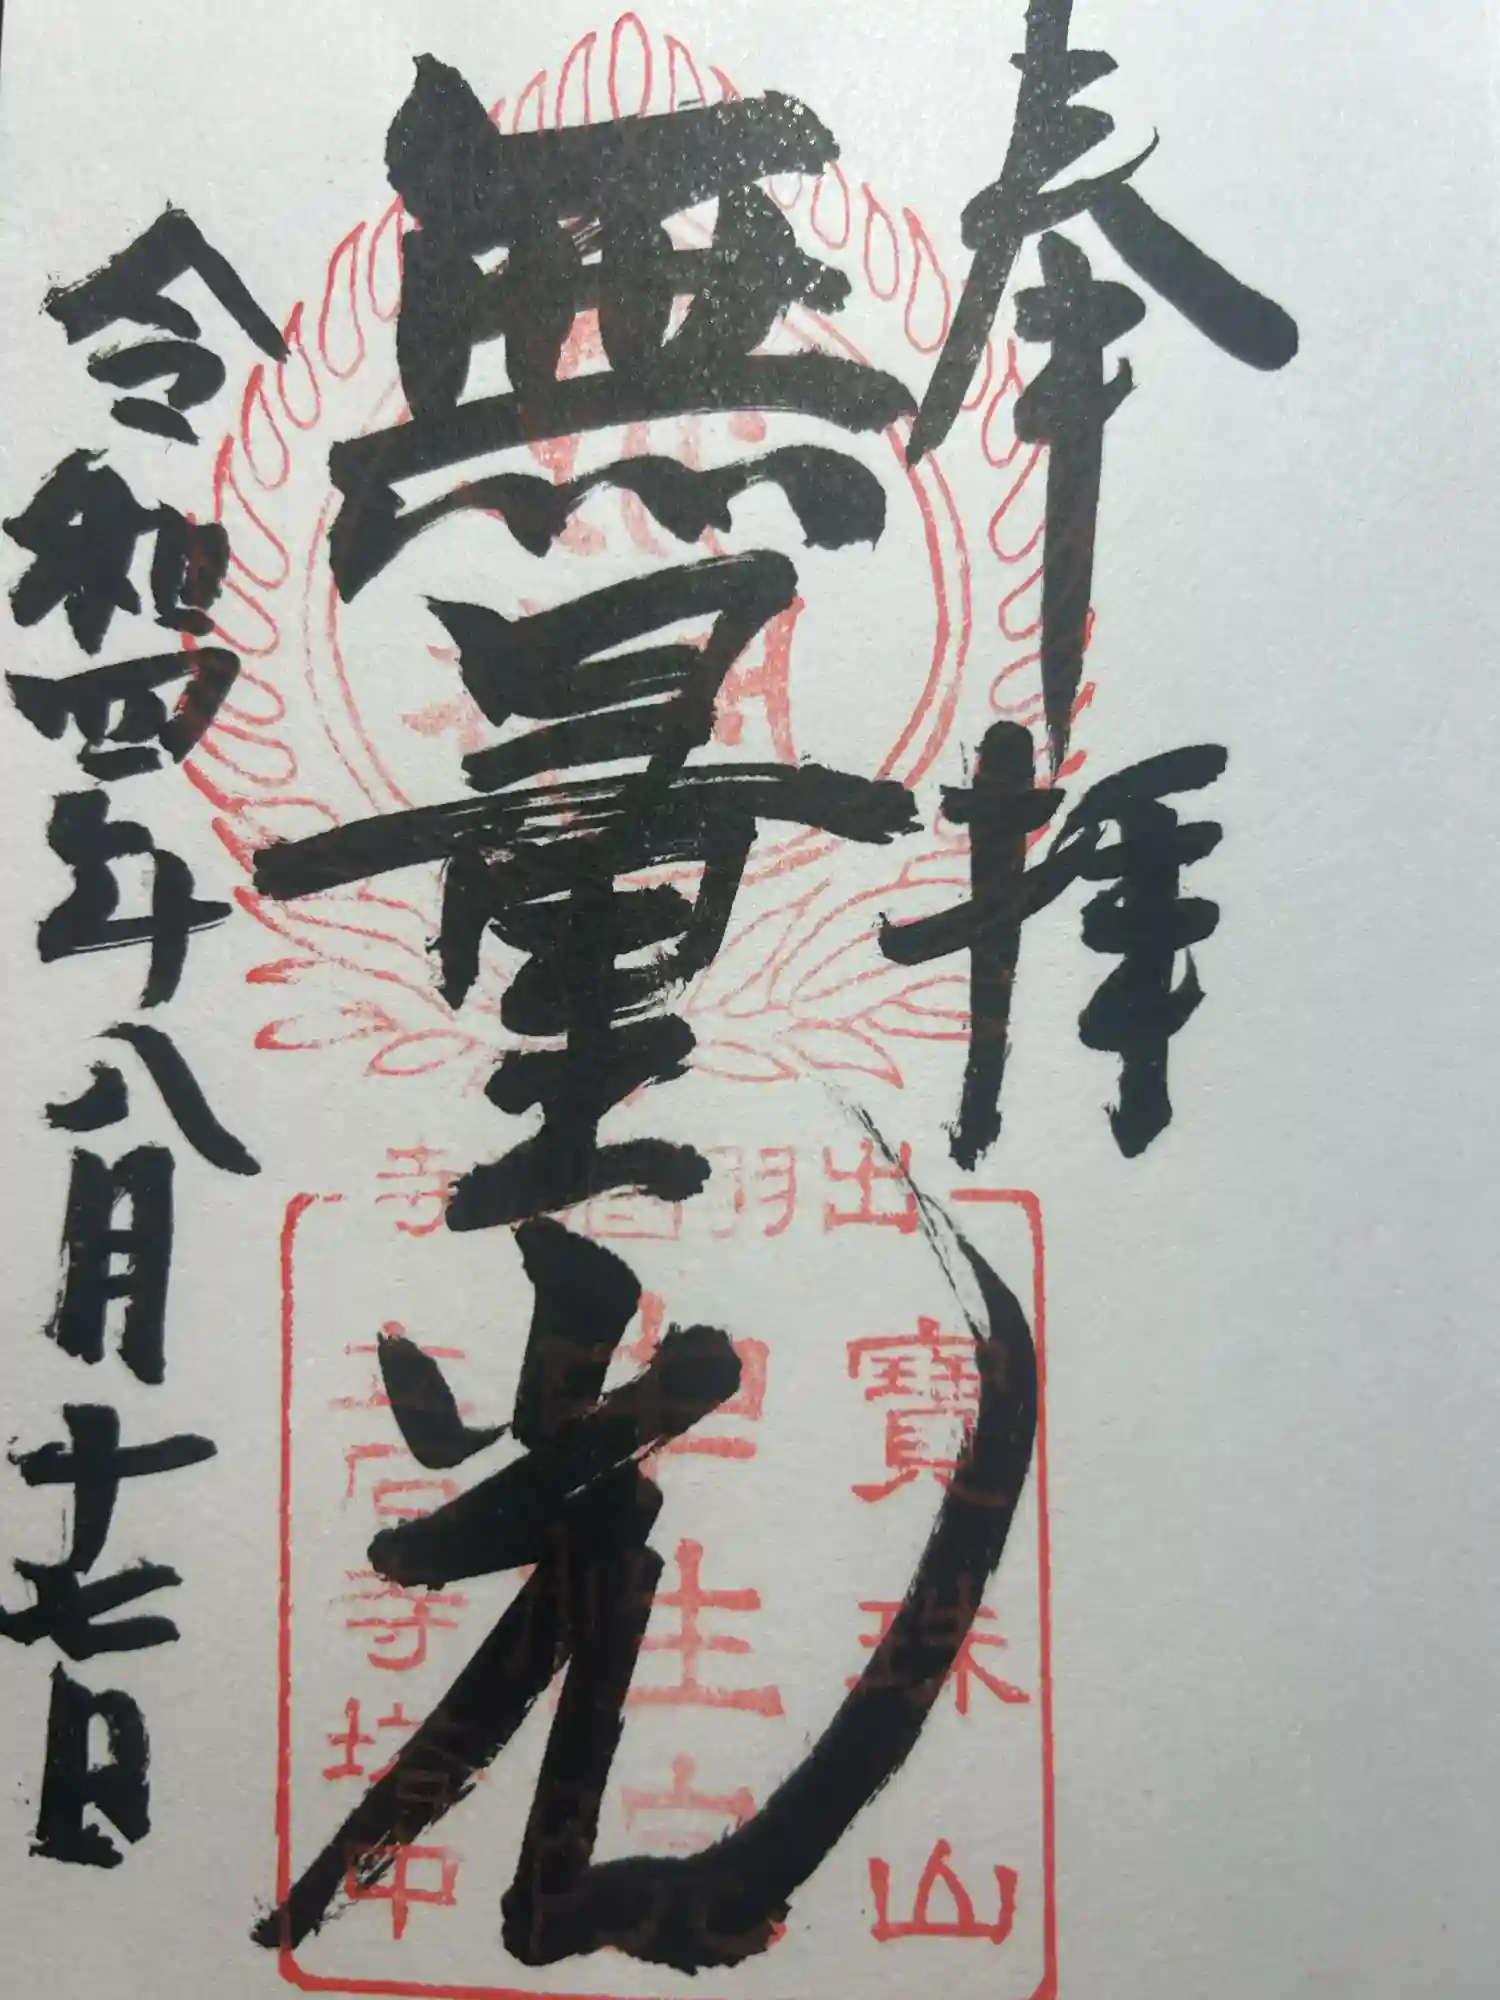 奉拝
無量光
令和四年八月十七日
出羽國 寺
寶珠山
立石寺坊中